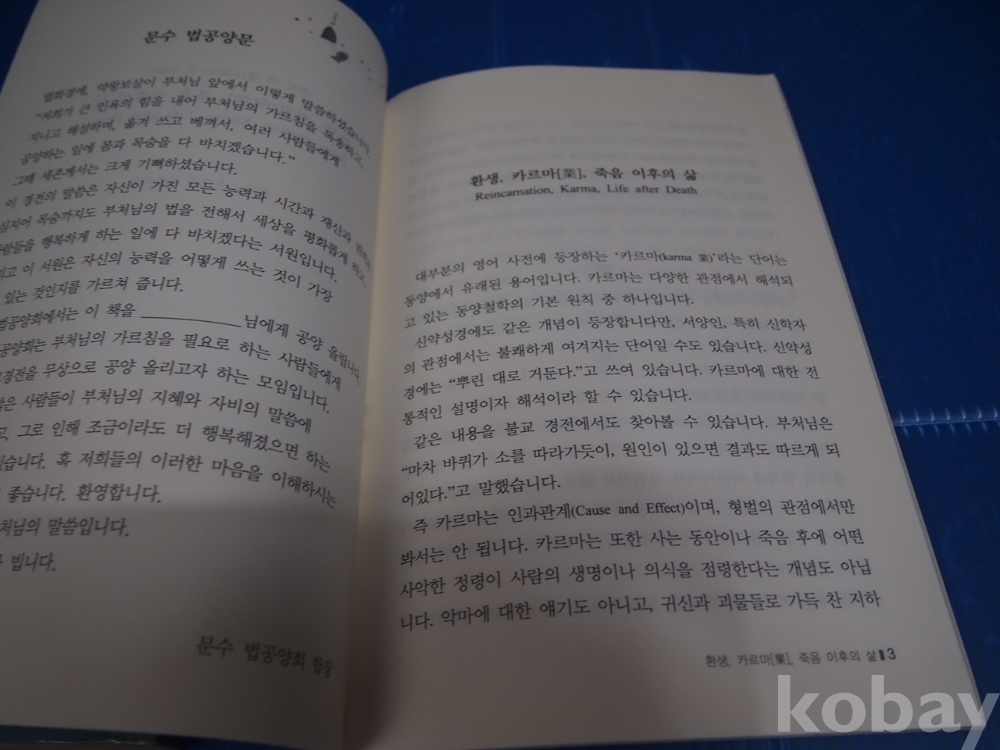 문수 법공양문
법화경에, 약왕보살이 부처님 앞에서 이렇게 말씀하셨습니다.
"저희가 큰 인욕의 힘을 내어 부처님의 가르침을 독송하고,
지니고 해설하며, 옮겨 쓰고 베껴서, 여러 사람들에게
공양하는 일에 몸과 목숨을 다 바치겠습니다."
그때 세존께서는 크게 기뻐하셨습니다.
이 경전의 말씀은 자신이 가진 모든 능력과 시간과 재산과
심지어 목숨까지도 부처님의 법을 전해서 세상을 평화롭게 하고,
사람들을 행복하게 하는 일에 다 바치겠다는 서원입니다.
이 서원은 자신의 능력을 어떻게 쓰는 것이 가장
있는 것인지를 가르쳐 줍니다.
법공양회에서는 이 책을 ____________ 님에게 공양 올립니다.
부처님의 가르침을 필요로 하는 사람들에게
무상으로 공양 올리고자 하는 모임입니다.
사람들이 부처님의 지혜와 자비의 말씀에
그로 인해 조금이라도 더 행복해졌으면 하는
혹 저희들의 이러한 마음을 이해하시는
좋습니다. 환영합니다.
말씀입니다.
빕니다.
문수 법공양회 합장
환생, 카르마[業], 죽음 이후의 삶
Reincarnation, Karma, Life after Death
대부분의 영어 사전에 등장하는 '카르마(karma 業)'라는 단어는
동양에서 유래된 용어입니다. 카르마는 다양한 관점에서 해석되
고 있는 동양철학의 기본 원칙 중 하나입니다.
신약성경에도 같은 개념이 등장합니다만, 서양인, 특히 신학자
의 관점에서는 불쾌하게 여겨지는 단어일 수도 있습니다. 신약성
경에는 "뿌린 대로 거둔다."고 쓰여 있습니다. 카르마에 대한 전
통적인 설명이자 해석이라 할 수 있습니다.
같은 내용을 불교 경전에서도 찾아볼 수 있습니다. 부처님은
"마차 바퀴가 소를 따라가듯이, 원인이 있으면 결과도 따르게 되
어있다."고 말했습니다.
즉 카르마는 인과관계(Cause and Effect)이며, 형벌의 관점에서만
봐서는 안 됩니다. 카르마는 또한 사는 동안이나 죽음 후에 어떤
사악한 정령이 사람의 생명이나 의식을 점령한다는 개념도 아닙
니다. 악마에 대한 얘기도 아니고, 귀신과 괴물들로 가득 찬 지하
환생, 카르마[業], 죽음 이후의 삶 13
kobay